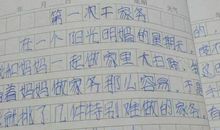 第一次干家务
在一个阳光明媚的星期天,
和妈妈一起做家里大扫除,
着妈妈做家务那么容易,
就挑了几件特别难做的家务,